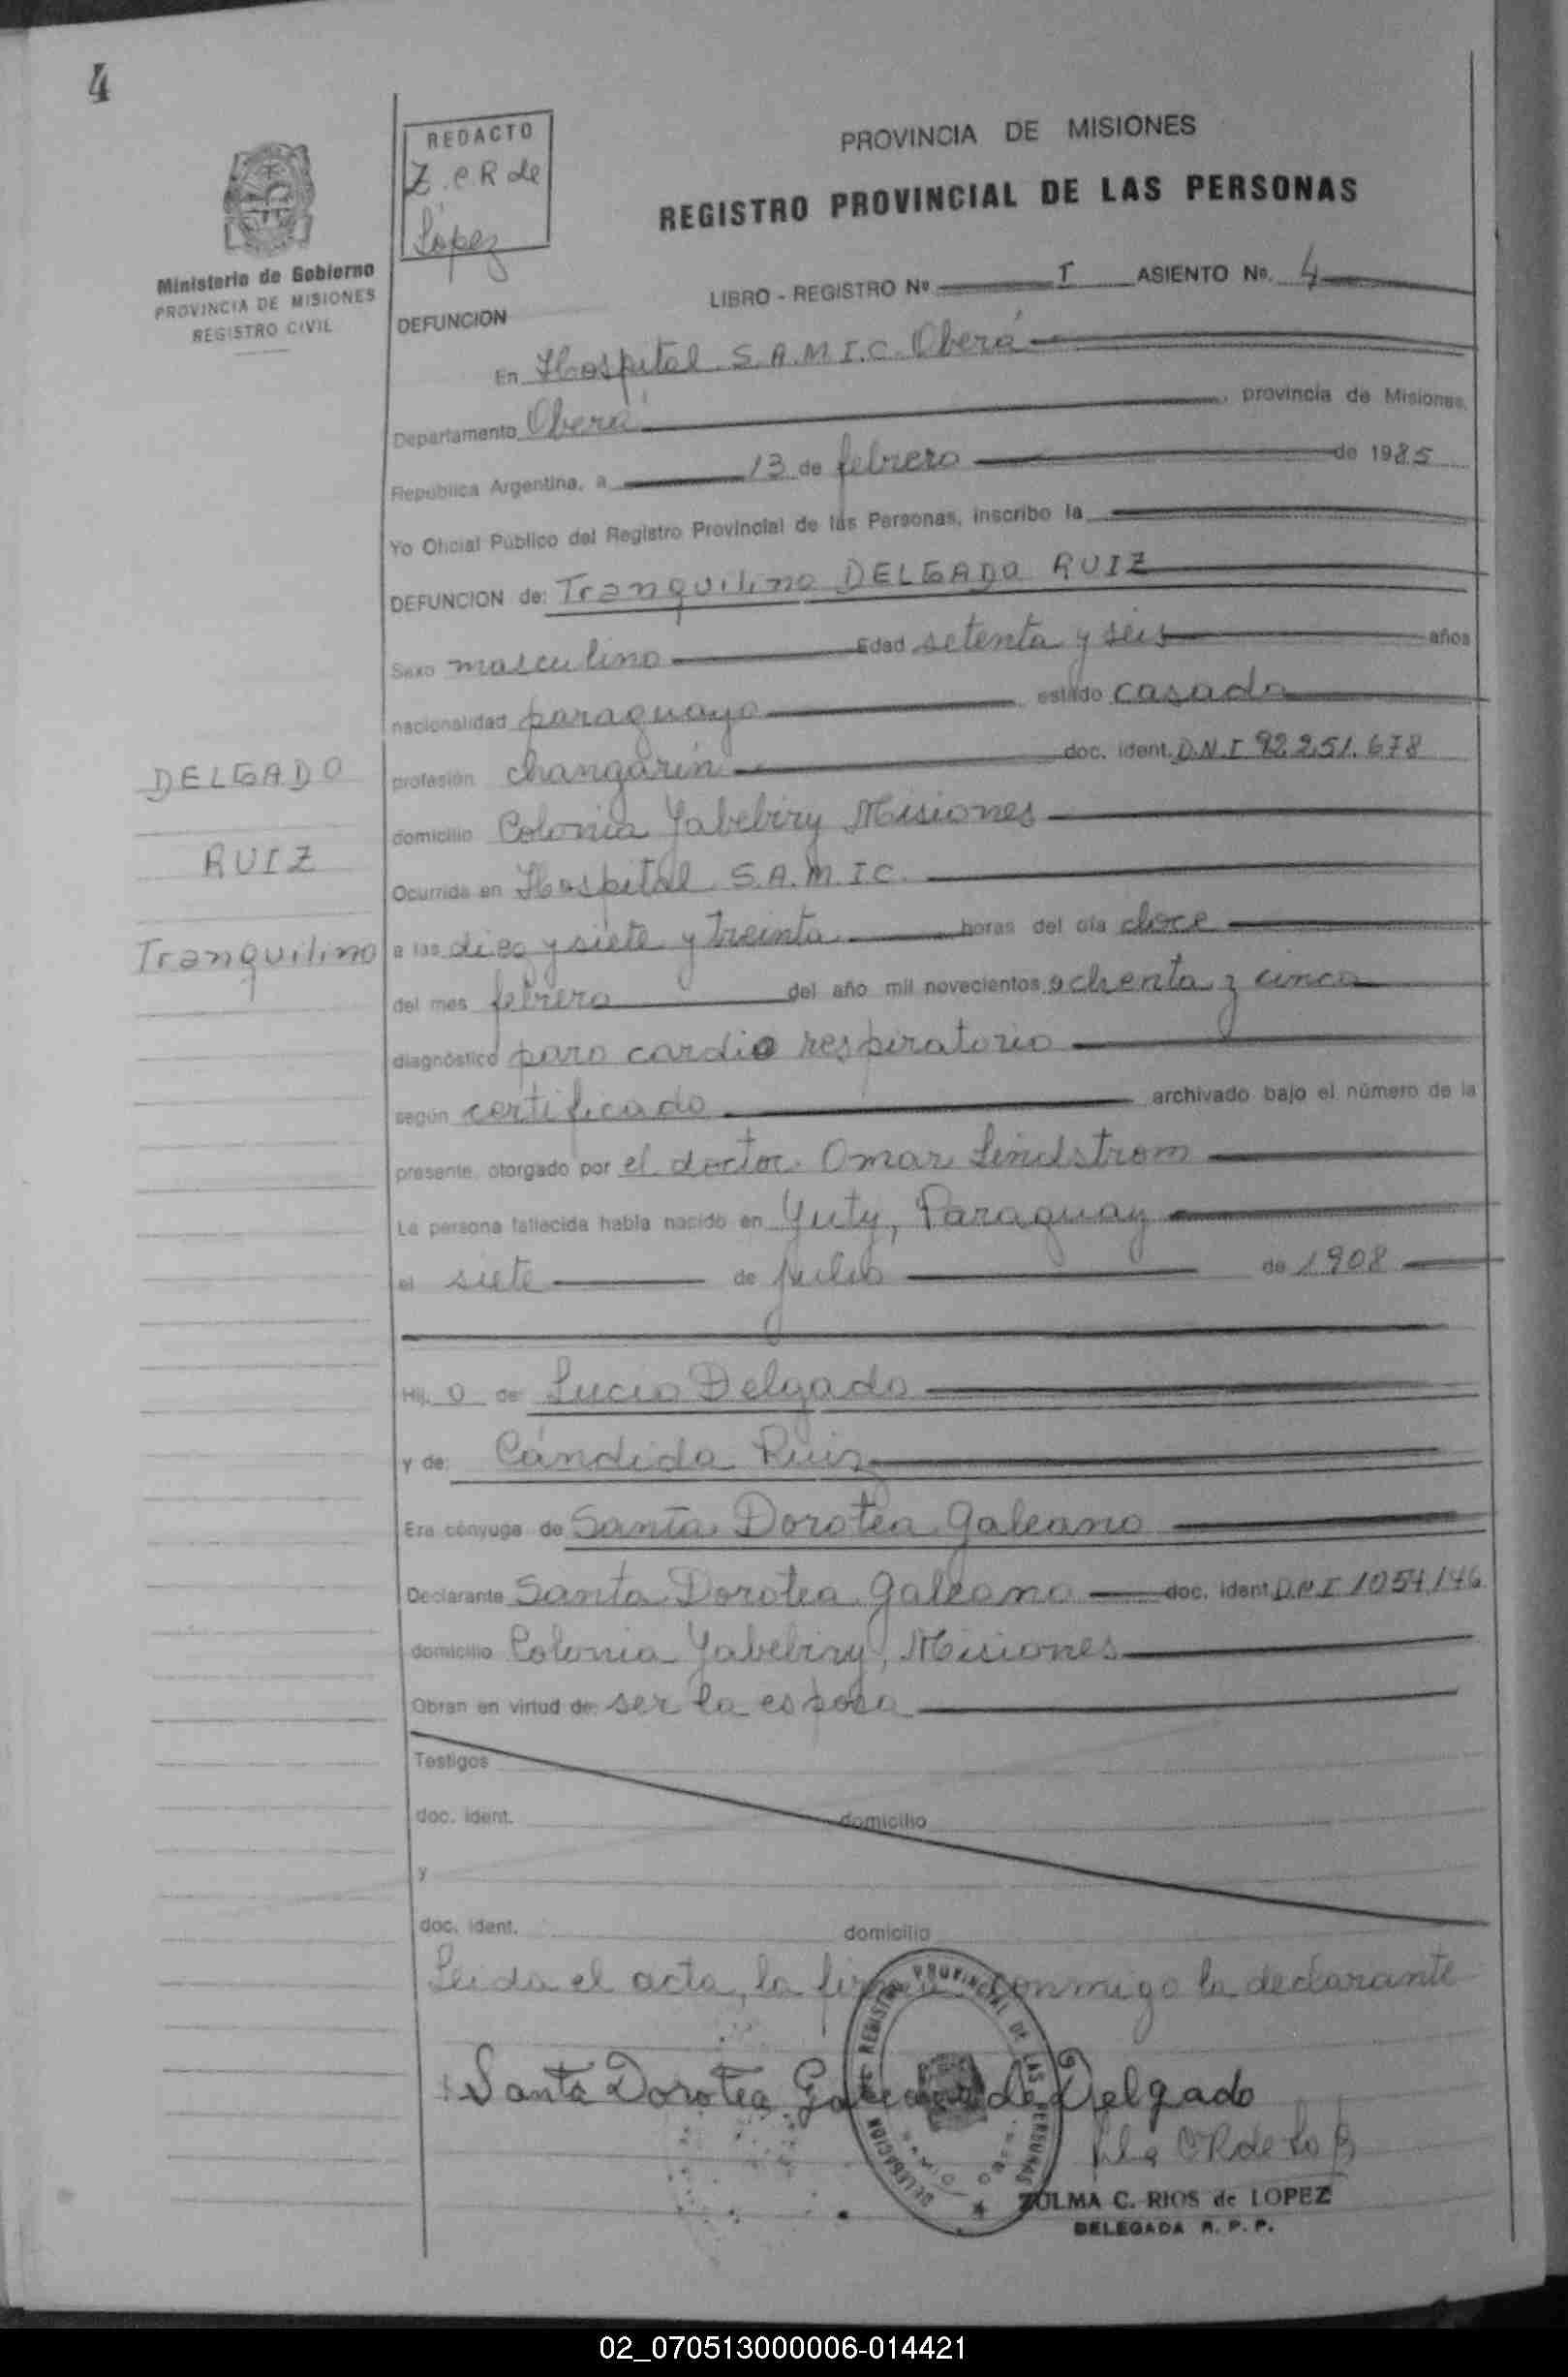 4
REDACTO
Z. C R de
López
PROVINCIA DE MISIONES
REGISTRO PROVINCIAL DE LAS PERSONAS
Ministerio de Gobierno
PROVINCIA DE MISIONES
REGISTRO CIVIL
LIBRO - REGISTRO Nº I ASIENTO Nº 4
DEFUNCION
En Hospital S.A.M.I.C. Oberá
Departamento Oberá, provincia de Misiones,
República Argentina, a 13 de febrero de 1985
Yo Oficial Público del Registro Provincial de las Personas, inscribo la
DEFUNCION de: Tranquilino DELGADO RUIZ
Sexo masculino Edad setenta y seis años
nacionalidad paraguayo estado casado
DELGADO
RUIZ
Tranquilino
profesión changarín doc. ident. D.N.I 92.251.678
domicilio Colonia Yabebiry Misiones
Ocurrida en Hospital S.A.M.I.C.
a las diez y siete y treinta horas del día doce
del mes febrero del año mil novecientos ochenta y cinco
diagnóstico paro cardio respiratorio
según certificado archivado bajo el número de la
presente, otorgado por el doctor Omar Lindstrom
La persona fallecida había nacido en Yuty, Paraguay
el siete de julio de 1908
Hij o de Lucio Delgado
y de: Cándida Ruiz
Era cónyuge de Santa Dorotea Galeano
Declarante Santa Dorotea Galeano doc. ident. D.N.I 1054146
domicilio Colonia Yabebiry, Misiones
Obran en virtud de: ser la esposa
Testigos
doc. ident. domicilio
y
doc. ident. domicilio
Leida el acta, la firma conmigo la declarante
Santa Dorotea Galeano de Delgado
DELEGACION REGISTRO PROVINCIAL DE LAS PERSONAS
ZULMA C. RIOS de LOPEZ
DELEGADA R. P. P.
02_070513000006-014421